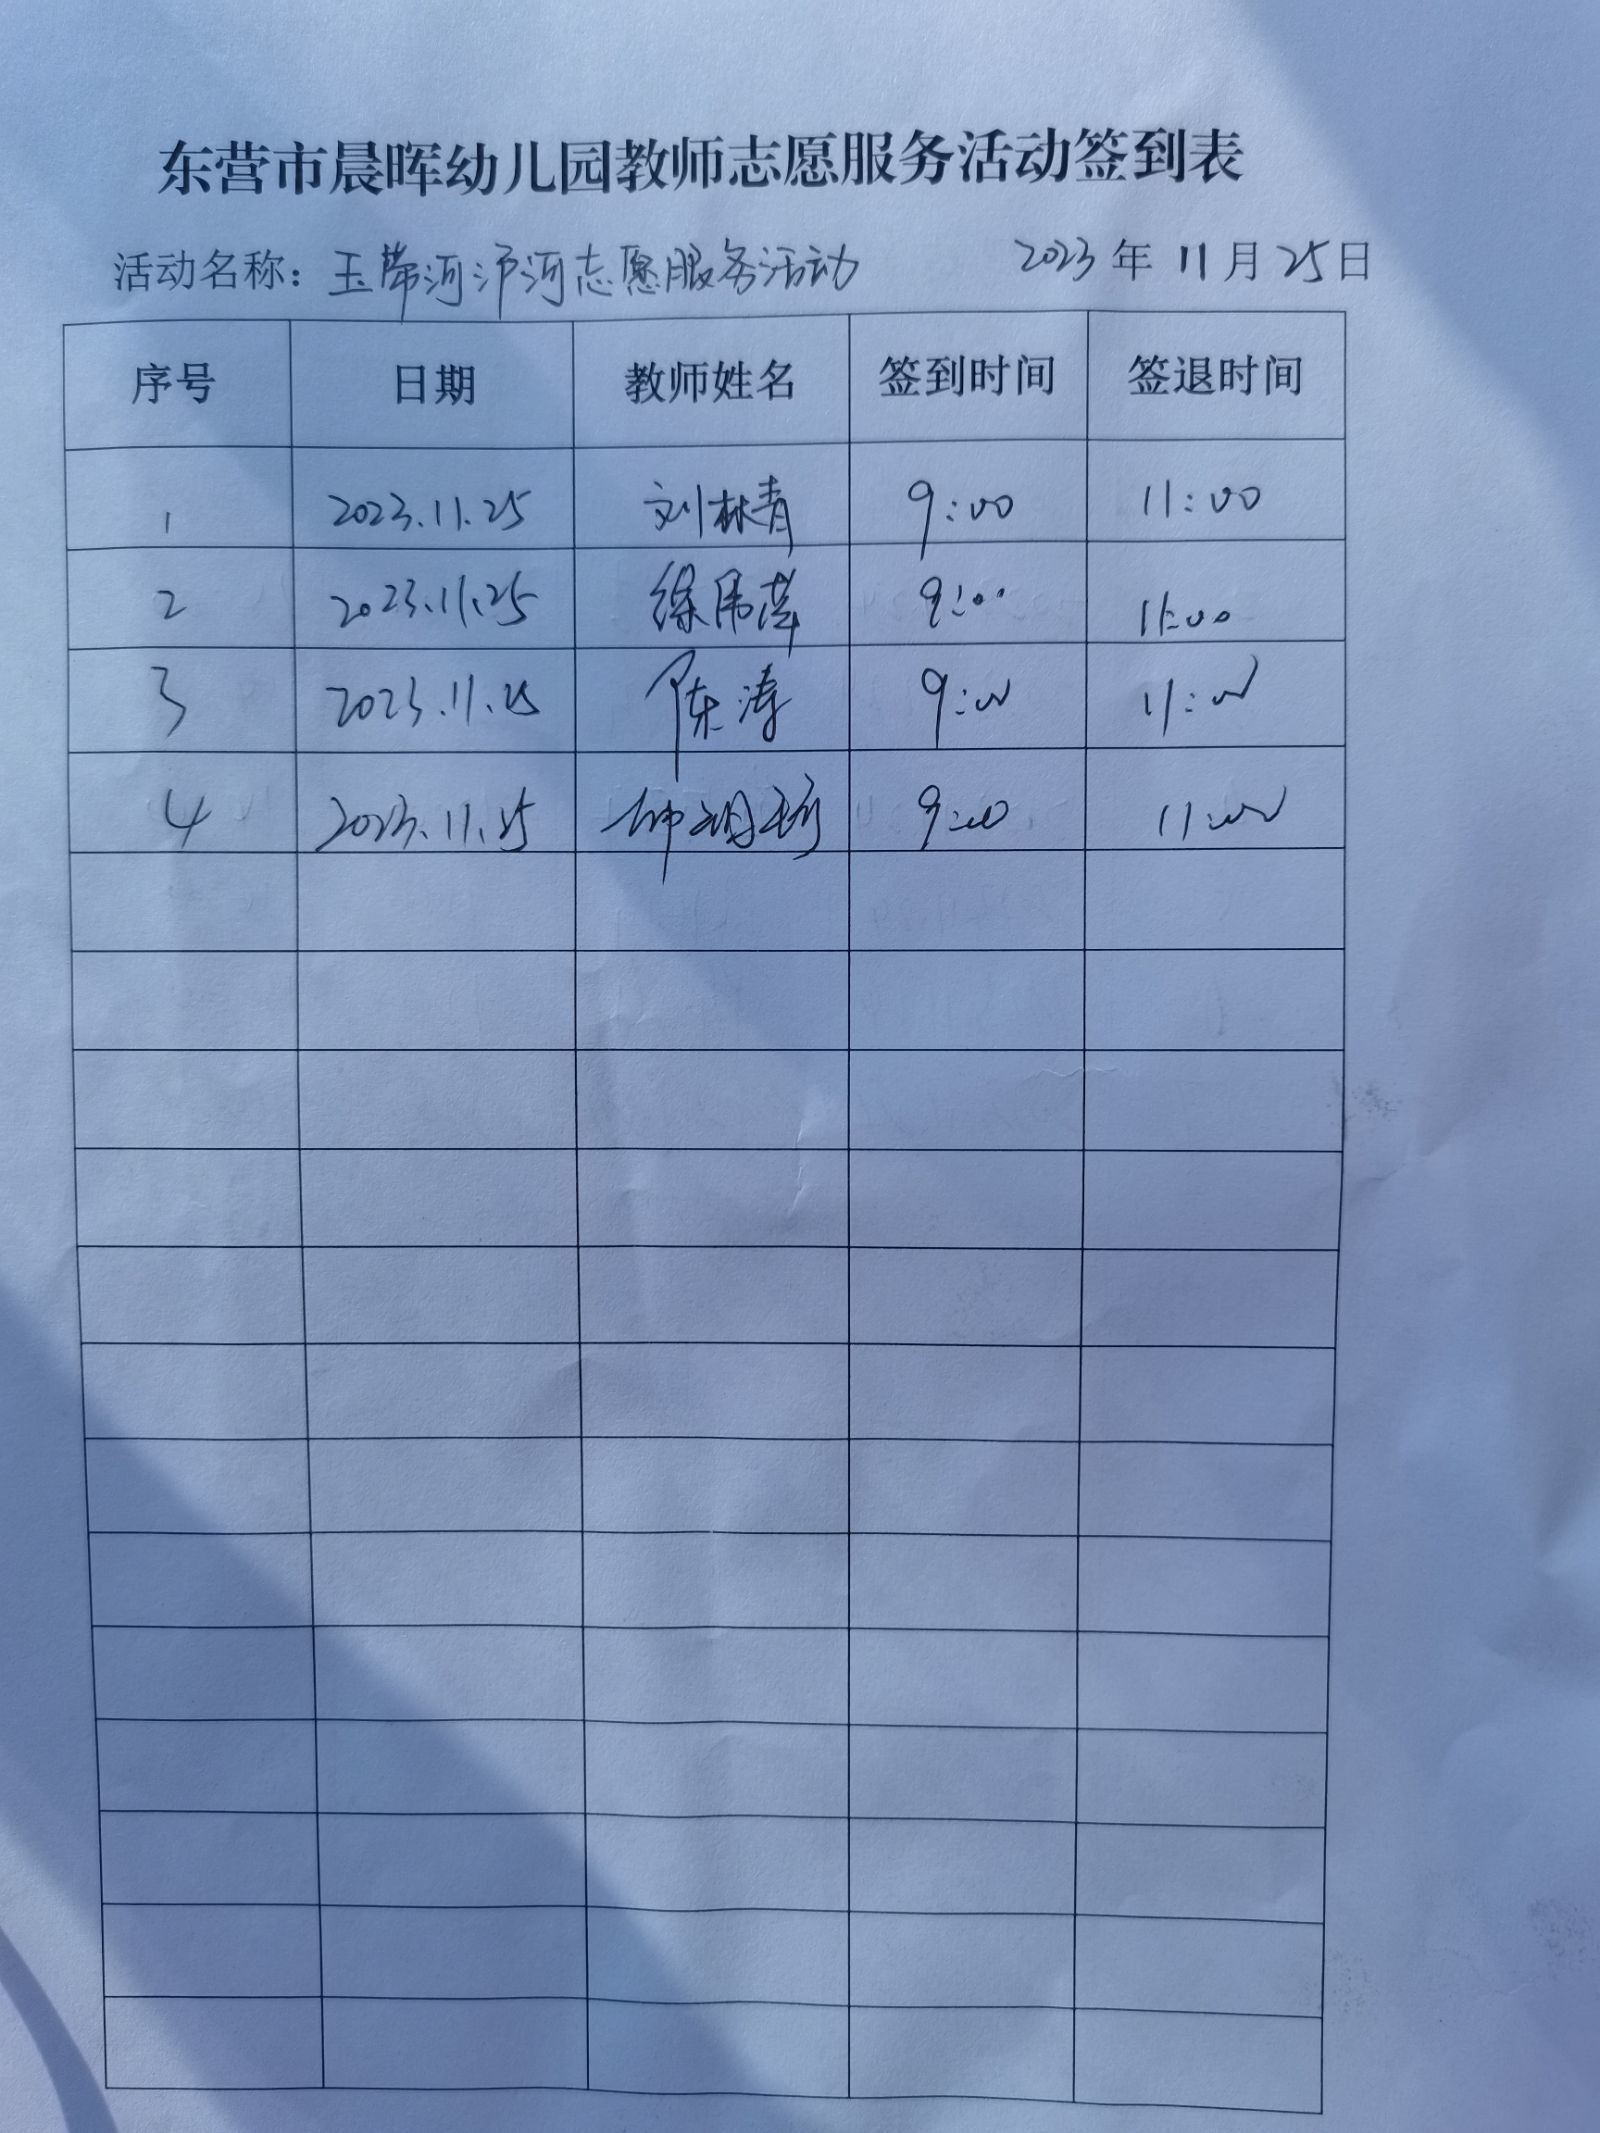 东营市晨晖幼儿园教师志愿服务活动签到表
活动名称：玉带河沪河志愿服务活动 2023年11月25日
序号 日期 教师姓名 签到时间 签退时间
1 2023.11.25 刘林青 9:00 11:00
2 2023.11.25 9:00 11:00
3 2023.11.25 陈涛 9:00 11:00
4 2023.11.25 9:00 11:00